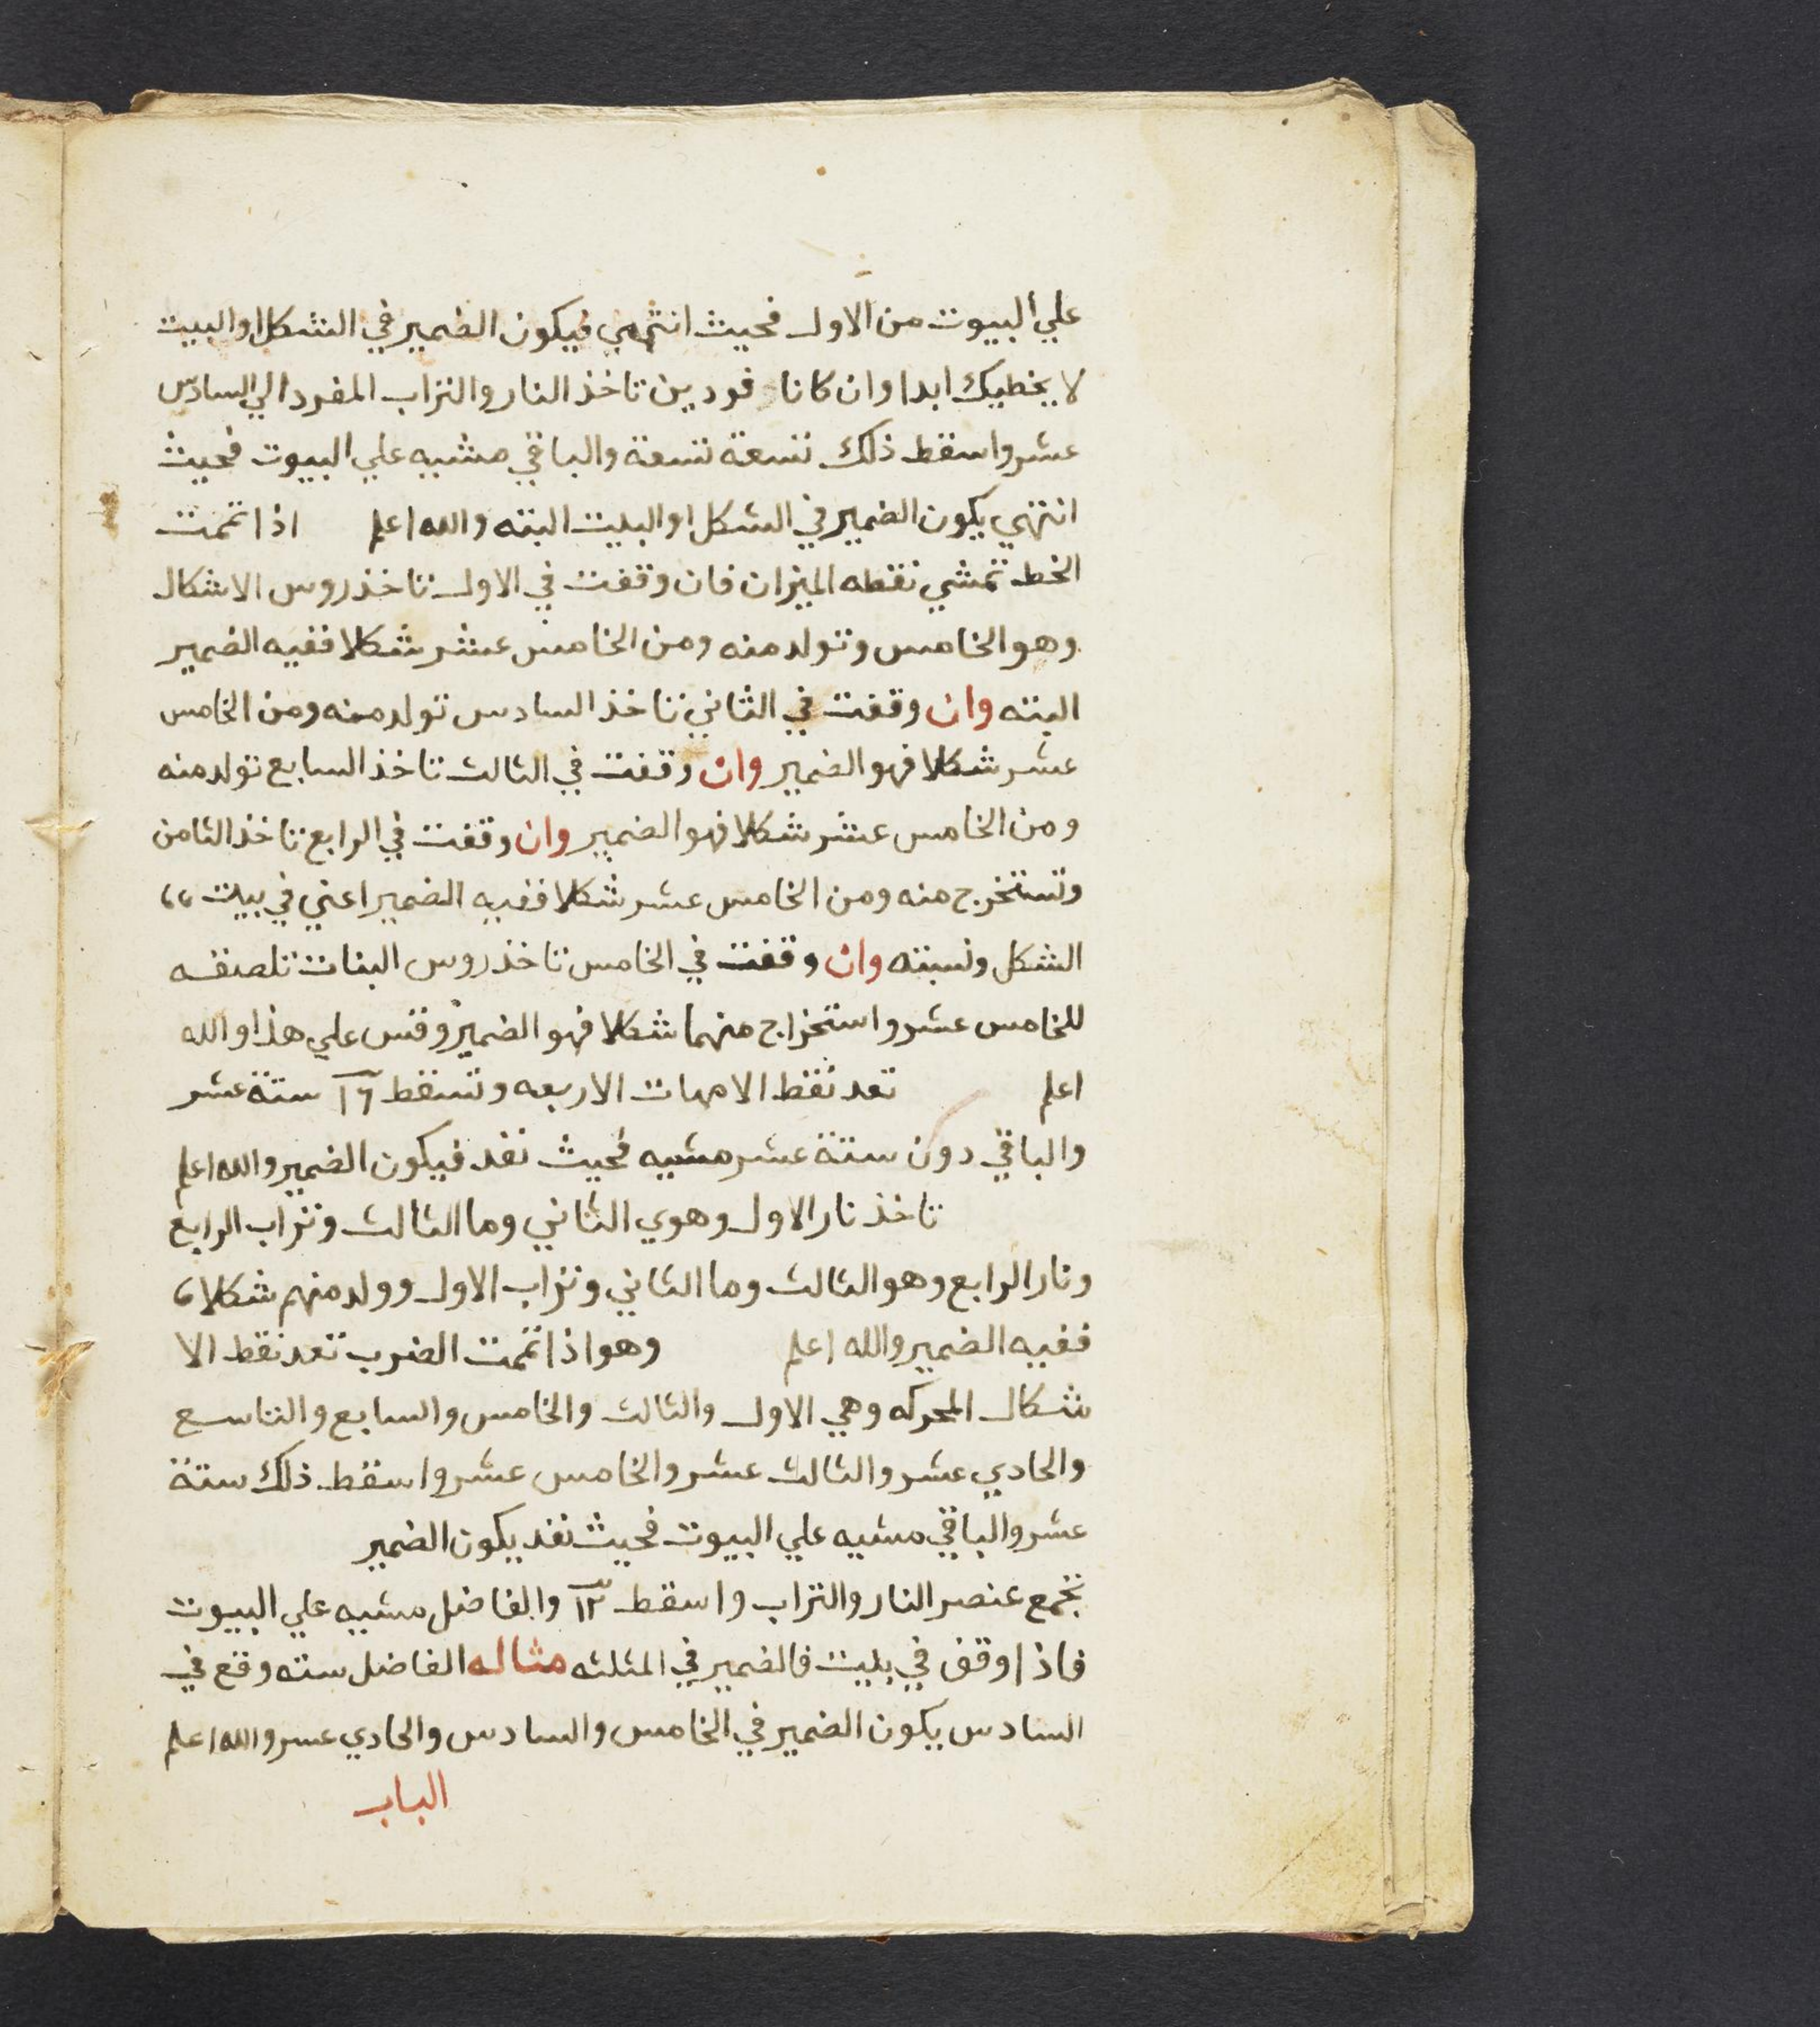 علي البيوت من الاول فحيث انتهي فيكون الضمير في الشكل او البيت
لا يخطيك ابدا وان كانا فردين تاخذ النار والتراب المفرد الي السادس
عشر واسقط ذلك تسعة تسعة والباقي مشيه علي البيوت فحيث
انتهي يكون الضمير في الشكل او البيت البته والله اعلم اذا تممت
الخط تمشي نقطه الميزان فان وقفت في الاول تاخذ روس الاشكال
وهو الخامس وتولد منه ومن الخامس عشر شكلا ففيه الضمير
البته وان وقفت في الثاني تاخذ السادس تولد منه ومن الخامس
عشر شكلا فهو الضمير وان وقفت في الثالث تاخذ السابع تولد منه
ومن الخامس عشر شكلا فهو الضمير وان وقفت في الرابع تاخذ الثامن
وتستخرج منه ومن الخامس عشر شكلا ففيه الضمير اعني في بيت
الشكل ونسبته وان وقفت في الخامس تاخذ روس البنات تلصقه
للخامس عشر واستخراج منهما شكلا فهو الضمير وقس علي هذا والله
اعلم تعد نقط الامهات الاربعه وتسقط ١٦ ستة عشر
والباقي دون ستة عشر مشيه فحيث نفد فيكون الضمير والله اعلم
تاخذ نار الاول وهوي الثاني وما الثالث وتراب الرابع
ونار الرابع وهو الثالث وما الثاني وتراب الاول وولد منهم شكلا
ففيه الضمير والله اعلم وهو اذا تممت الضرب تعد نقط الا
شكال المحركه وهي الاول والثالث والخامس والسابع والتاسع
والحادي عشر والثالث عشر والخامس عشر واسقط ذلك ستة
عشر والباقي مشيه علي البيوت فحيث نفد يكون الضمير
تجمع عنصر النار والتراب واسقط ١٢ والفاضل مشيه علي البيوت
فاذا وقف في بيت فالضمير في المثلثه مثاله الفاضل سته وقع في
السادس يكون الضمير في الخامس والسادس والحادي عسر والله اعلم
الباب